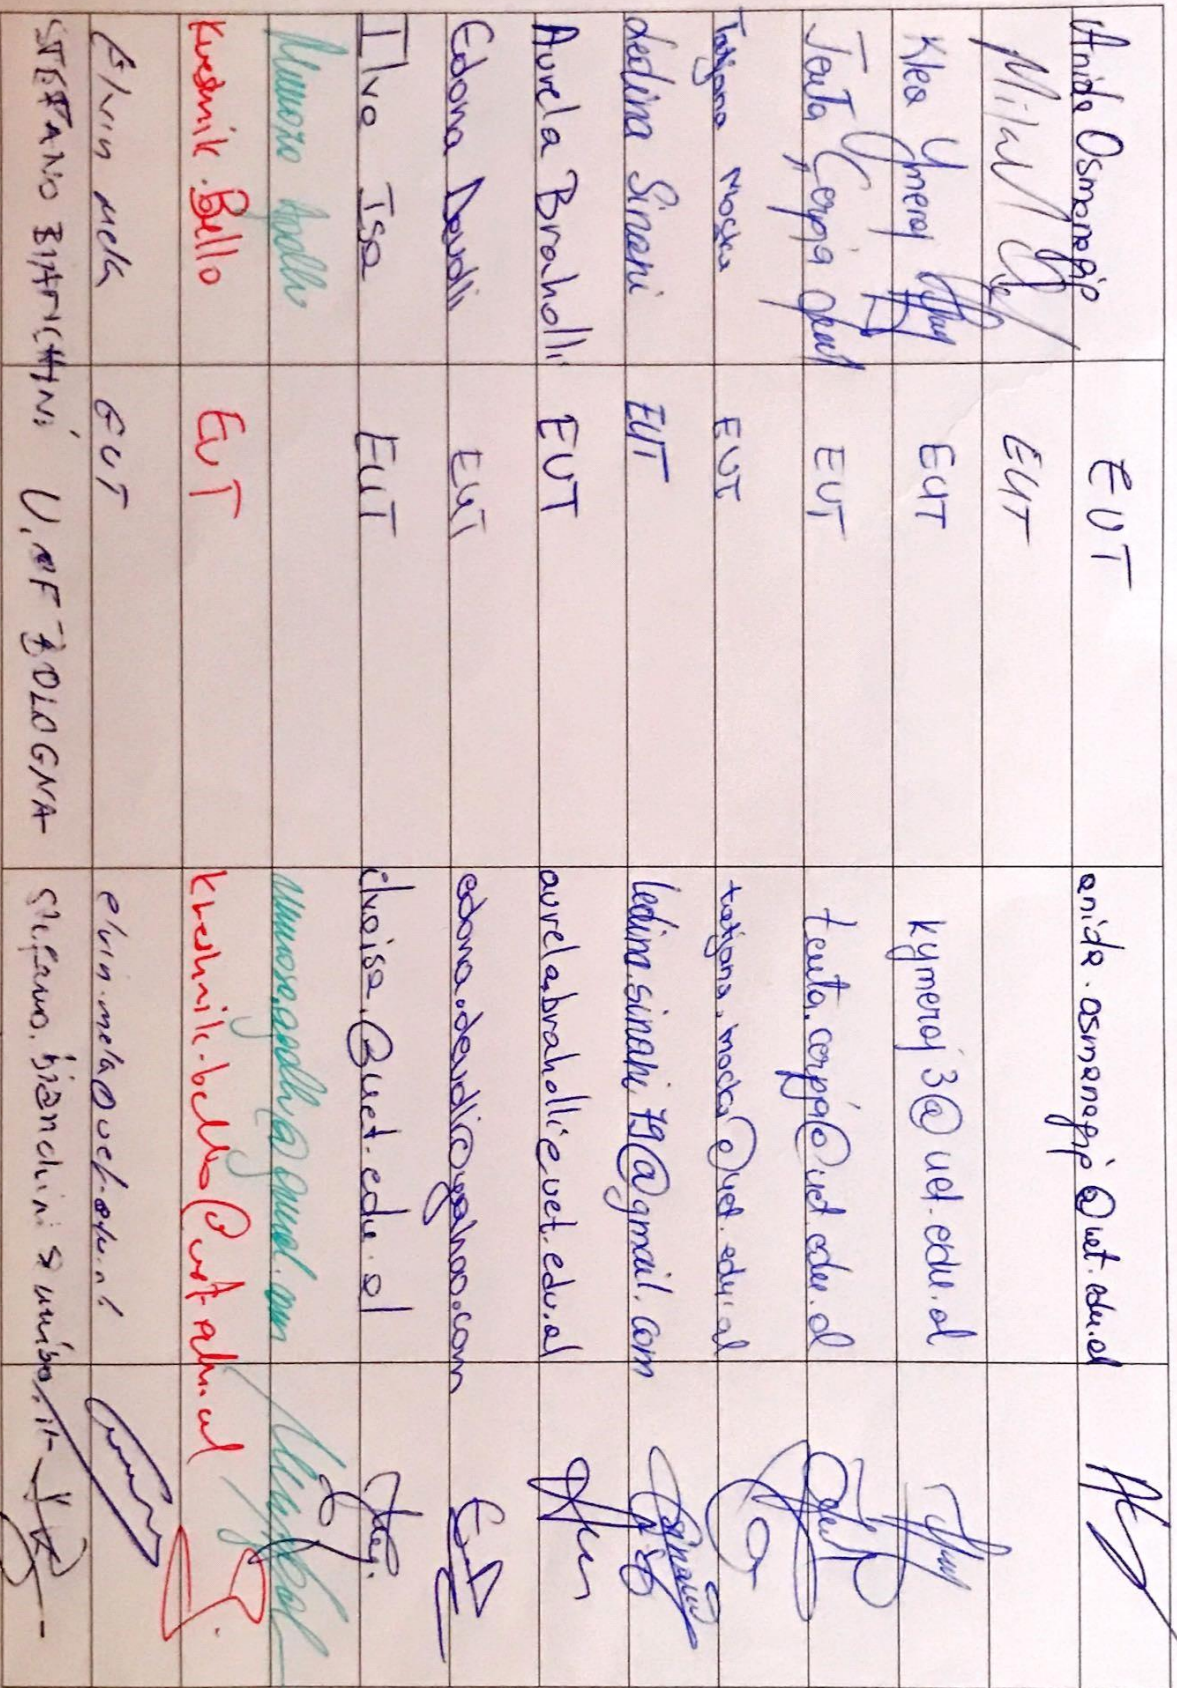 Anida Osmanagiç EUT anida.asmanagiç@uet.edu.al
EUT
Klea Ymeraj EUT kymeraj3@uet.edu.al
Teuta Çerpja EUT teuta.cerpja@uet.edu.al
Tatjana Mocka EUT tatjana.mocka@uet.edu.al
Ledina Sinani EUT ledina.sinani79@gmail.com
Aurela Braholli EUT aurela.braholli@uet.edu.al
Edona Deudli EUT edona.deudli@yahoo.com
Ilva Isa EUT ilva.isa@uet.edu.al
Kreshnik Bello EUT kreshnik.bello@uet.edu.al
Elvin Meka EUT elvin.meka@uet.edu.al
STEFANO BIANCHINI U. OF BOLOGNA stefano.bianchini@unibo.it